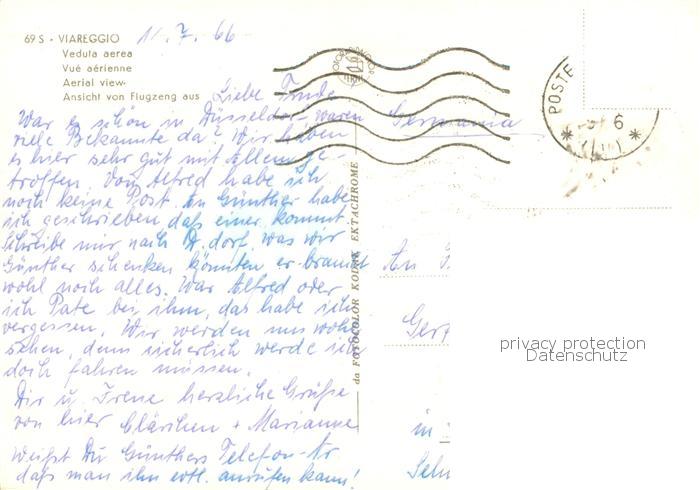 69 S - VIAREGGIO
11.7.66
Veduta aerea
Vué aérienne
Aerial view
Ansicht von Flugzeng aus
Liebe
War es schön in Düsseldorf - waren
viele Bekannte da? Wir haben
es hier sehr gut mit Allem ge-
troffen. Von Alfred habe ich
noch keine Post. An Günther habe
ich geschrieben daß einer kommt.
Schreibe mir nach D.dorf, was wir
Günther schenken könnten er braucht
wohl noch alles. War Alfred oder
ich Pate bei ihm, das habe ich
vergessen. Wir werden uns wohl
sehen, denn sicherlich werde ich
doch fahren müssen.
Dir u. Irene herzliche Grüße
von hier Clärchen + Marianne
Weißt Du Günthers Telefon-Nr.
daß man ihn evtl. anrufen kann!
da FOTOCOLOR KODAK EKTACHROME
Germania
POSTE
6
An
Ger
in
privacy protection
Datenschutz